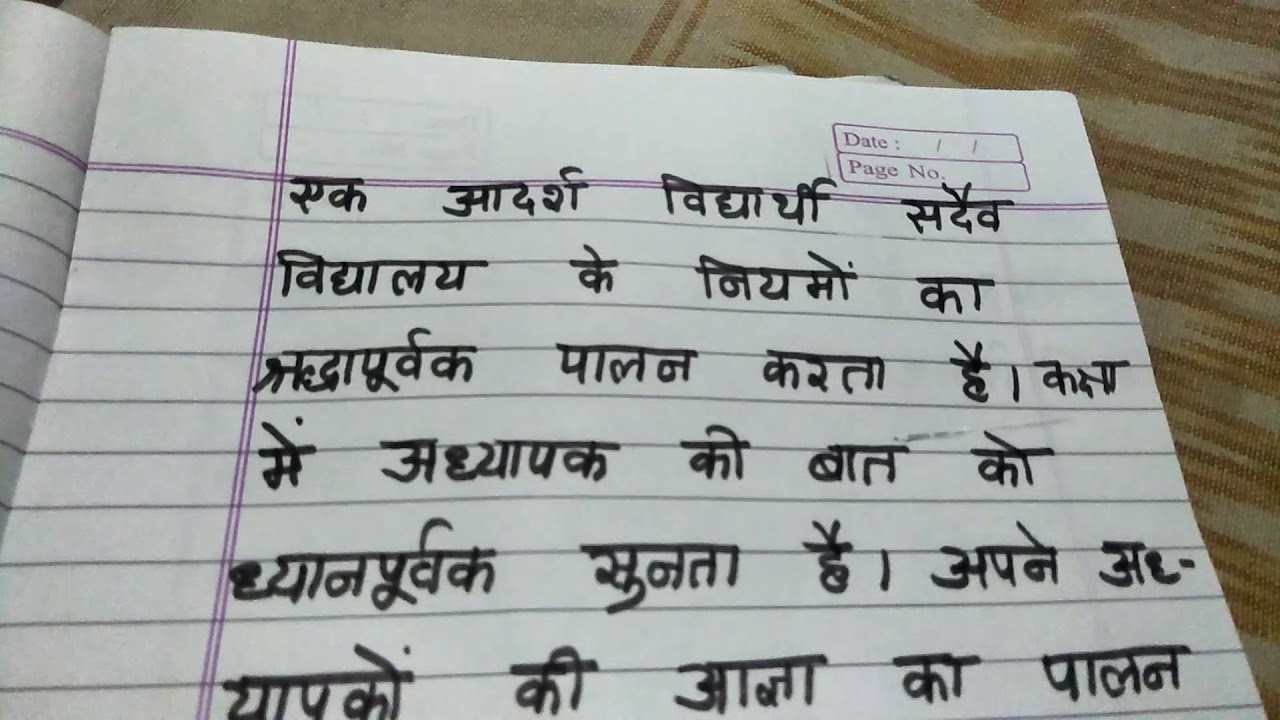 Date : / /
Page No.
एक आदर्श विद्यार्थी सदैव
विद्यालय के नियमों का
श्रद्धापूर्वक पालन करता है। कक्षा
में अध्यापक की बात को
ध्यानपूर्वक सुनता है। अपने अध-
यापकों की आज्ञा का पालन